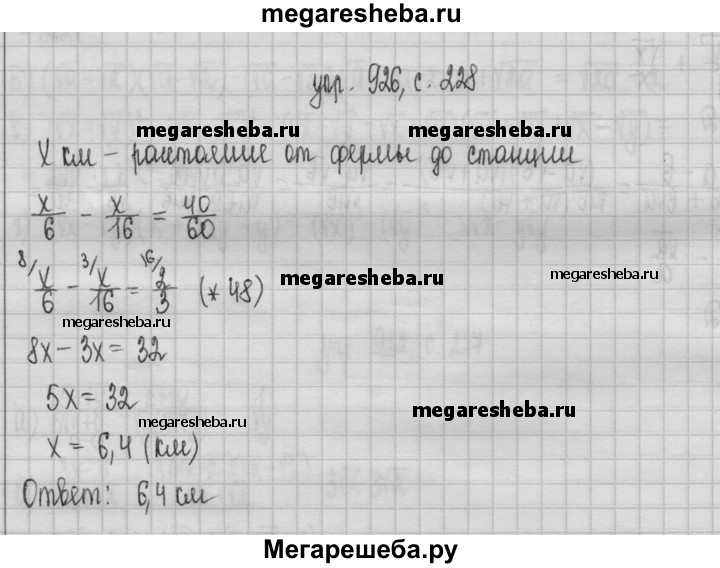 megaresheba.ru
упр. 926, с. 228
megaresheba.ru megaresheba.ru
X км – расстояние от фермы до станции
x/6 - x/16 = 40/60
8/ x/6 - 3/ x/16 = 16/ 2/3 (* 48)
megaresheba.ru megaresheba.ru
megaresheba.ru
8x - 3x = 32
5x = 32
megaresheba.ru megaresheba.ru
x = 6,4 (км)
Ответ: 6,4 см
Мегарешеба.ру